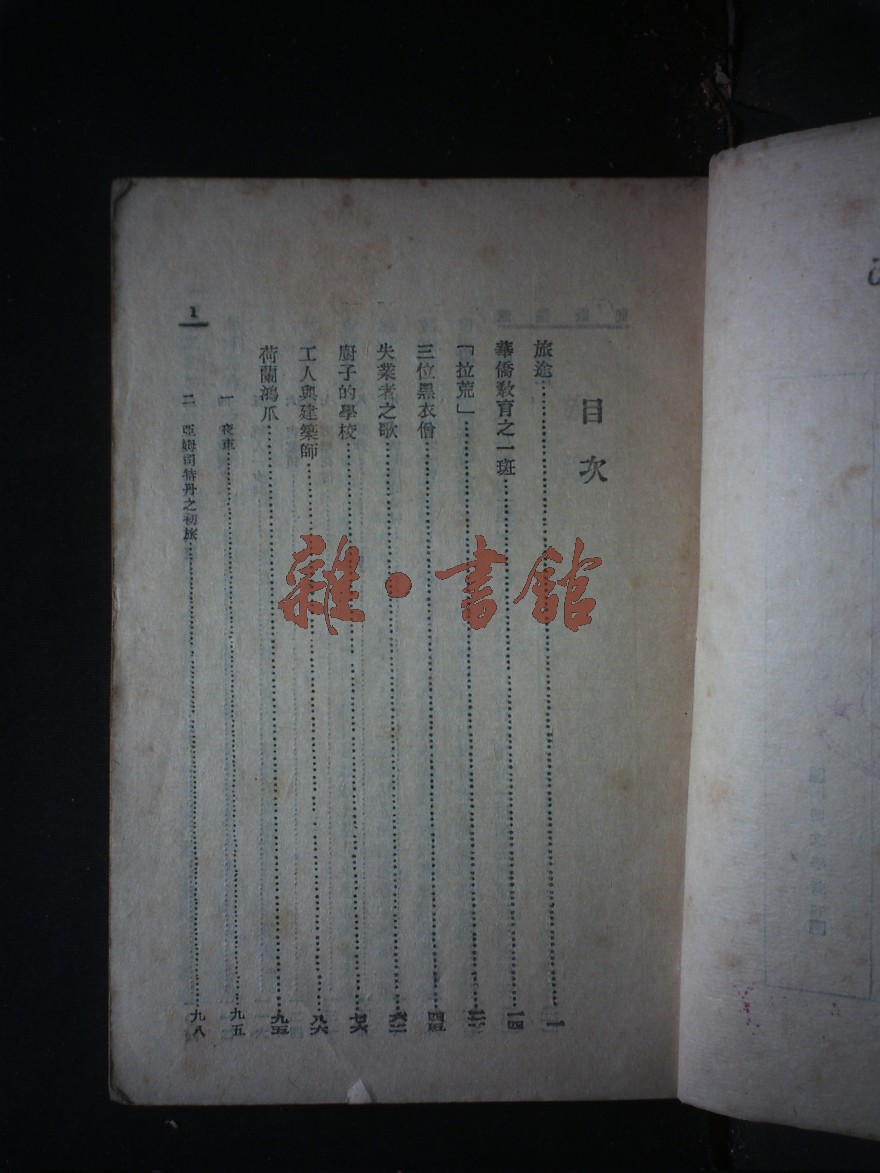 目次
旅途一
華僑教育之一斑一四
「拉荒」
三位黑衣僧
失業者之歌
廚子的學校七六
工人與建築師八六
荷蘭鴻爪九五
一 夜車九五
二 亞姆司特丹之初旅九八
1
雜·書館